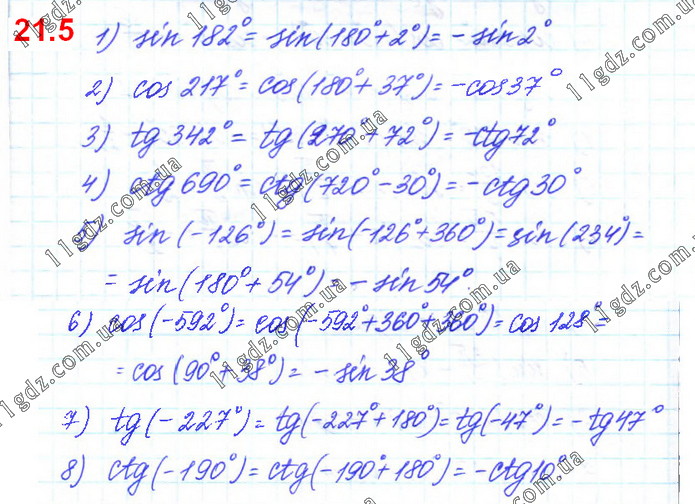 21.5
1) sin 182° = sin(180°+2°) = - sin 2°
2) cos 217° = cos(180°+ 37°) = -cos37°
3) tg 342° = tg (270°+72°) = -ctg72°
4) ctg 690° = ctg(720°-30°) = -ctg30°
5) sin (-126°) = sin(-126°+360°) = sin(234°) =
= sin(180°+ 54°) = - sin 54°.
6) cos(-592°) = cos(-592°+360°+360°) = cos 128° =
= cos (90°+38°) = - sin 38°
7) tg(-227°) = tg(-227°+180°) = tg(-47°) = -tg47°
8) ctg(-190°) = ctg(-190°+180°) = -ctg10°
11gdz.com.ua
11gdz.com.ua
11gdz.com.ua
11gdz.com.ua
11gdz.com.ua
11gdz.com.ua
11gdz.com.ua